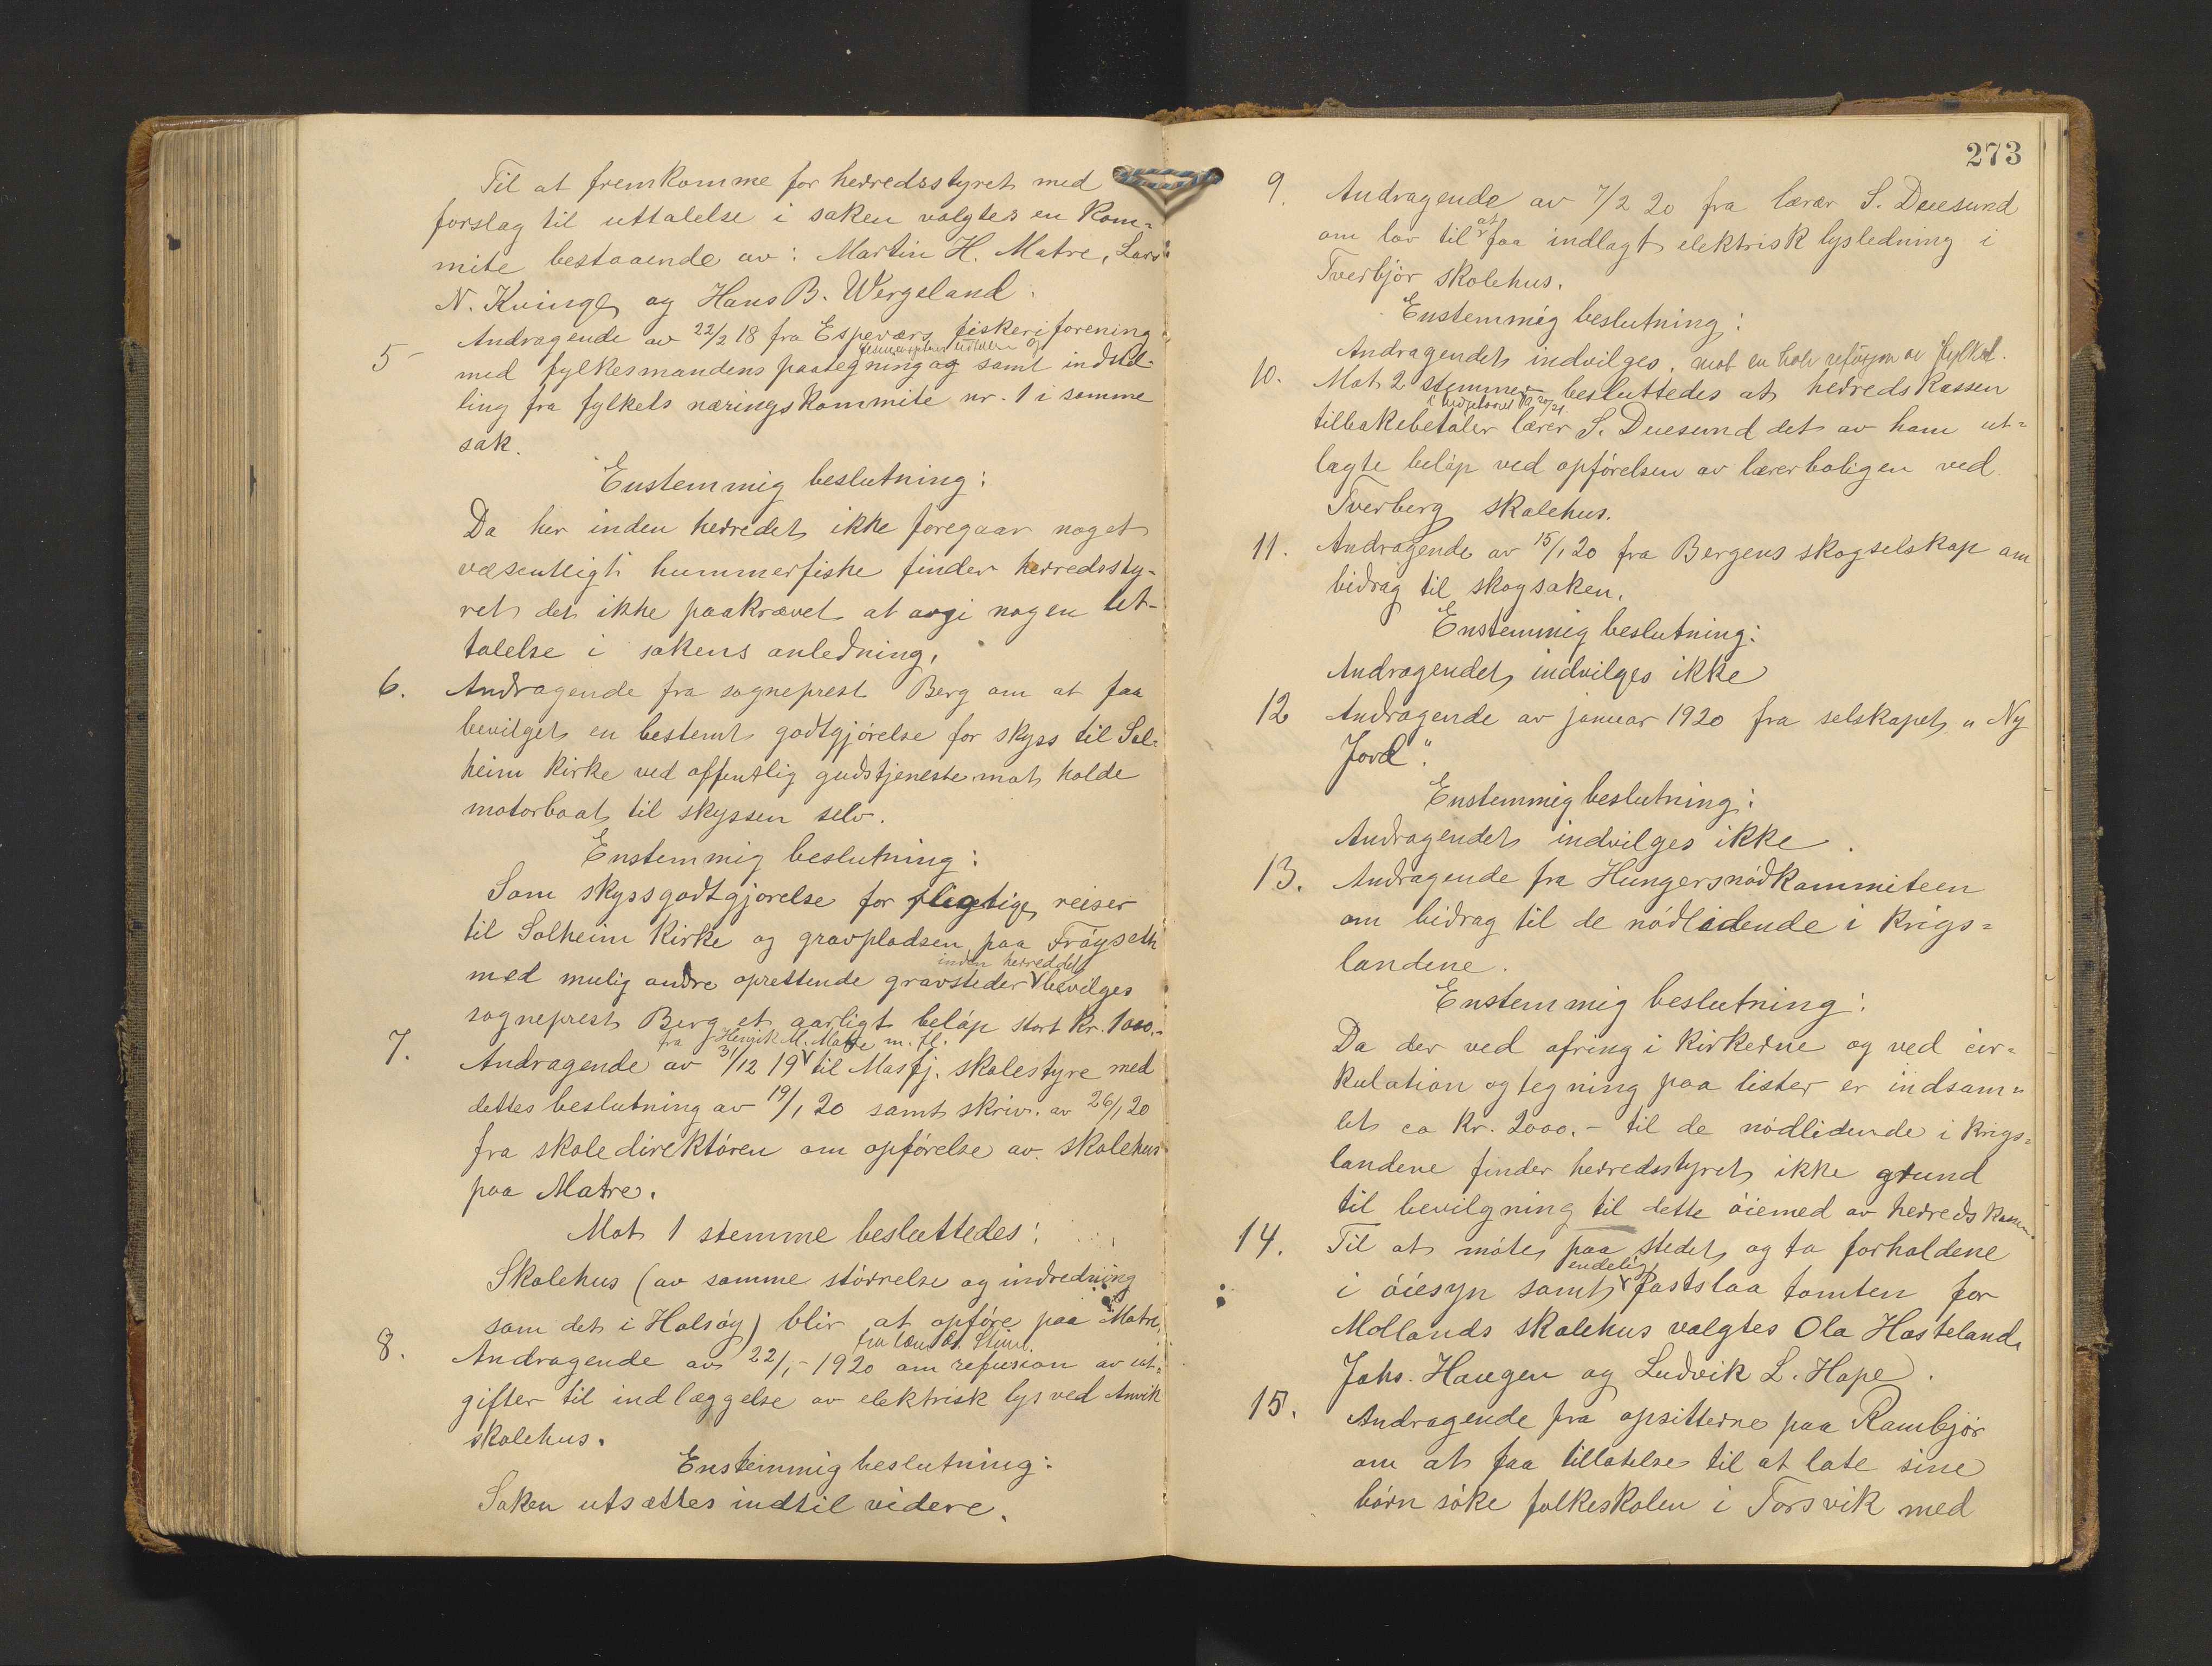 Til at fremkomme for herredsstyret med
forslag til uttalelse i saken valgtes en kom-
mite bestaaende av: Martin H. Matre, Lars
N. Kvinge og Hans B. Wergeland.
5 Andragende av 22/2 18 fra Espeværs fiskeriforening
med fylkesmandens paategning og samt indstil-
ling fra fylkets næringskommite nr. 1 i samme
sak.
Enstemmig beslutning:
Da her inden herredet ikke foregaar noget
væsentligt hummerfiske finder herredssty-
ret det ikke paakrævet at avgi nogen ut-
talelse i sakens anledning.
6. Andragende fra sogneprest Berg om at faa
bevilget en bestemt godtgjørelse for skyss til Sol-
heim kirke ved offentlig gudstjeneste mot holde
motorbaat til skyssen selv.
Enstemmig beslutning:
Som skyssgodtgjørelse for pligtige reiser
til Solheim kirke og gravpladsen paa Frøyseth
inden herredet
med mulig andre oprettende gravsteder bevilges
sogneprest Berg et aarligt beløp stort kr. 1000.-
fra Henrik M. Matre m. fl.
7. Andragende av 31/12 19 til Masfj. skolestyre med
dettes beslutning av 19/1 20 samt skriv. av 26/1 20
fra skoledirektøren om opførelse av skolehus
paa Matre.
Mot 1 stemme besluttedes:
Skolehus (av samme størrelse og indredning
som det i Halsøy) blir at opføre paa Matre.
8. Andragende av 22/1 - 1920 om refusion av ut-
gifter til indlæggelse av elektrisk lys ved Anvik
skolehus.
Enstemmig beslutning:
Saken utsættes indtil videre.
273
9. Andragende av 7/2 20 fra lærer S. Duesund
at
om lov til faa indlagt elektrisk lysledning i
Tverbjør skolehus.
Enstemmig beslutning:
Andragendet indvilges. mot en halv refusjon av fylket.
10. Mot 2 stemmer besluttedes at herredskassen
i budgetaaret 1920/21.
tilbakebetaler lærer S. Duesund det av ham ut-
lagte beløp ved opførelsen av lærerboligen ved
Tverberg skolehus.
11. Andragende av 15/1 20 fra Bergens skogselskap om
bidrag til skogsaken.
Enstemmig beslutning:
Andragendet indvilges ikke
12 Andragende av januar 1920 fra selskapet „Ny
Jord".
Enstemmig beslutning:
Andragendet indvilges ikke.
13. Andragende fra Hungersnødkommiteen
om bidrag til de nødlidende i krigs-
landene.
Enstemmig beslutning:
Da der ved ofring i kirkerne og ved cir-
kulation og tegning paa lister er indsam-
let ca kr. 2000.- til de nødlidende i krigs-
landene finder herredsstyret ikke grund
til bevilgning til dette øiemed av herredskassen.
14. Til at møte paa stedet og ta forholdene
endelig
i øiesyn samt fastslaa tomten for
Mollands skolehus valgtes Ola Hosteland,
Johs. Haugen og Ludvik L. Hope.
15. Andragende fra opsitterne paa Rambjør
om at faa tillatelse til at late sine
børn søke folkeskolen i Torsvik med